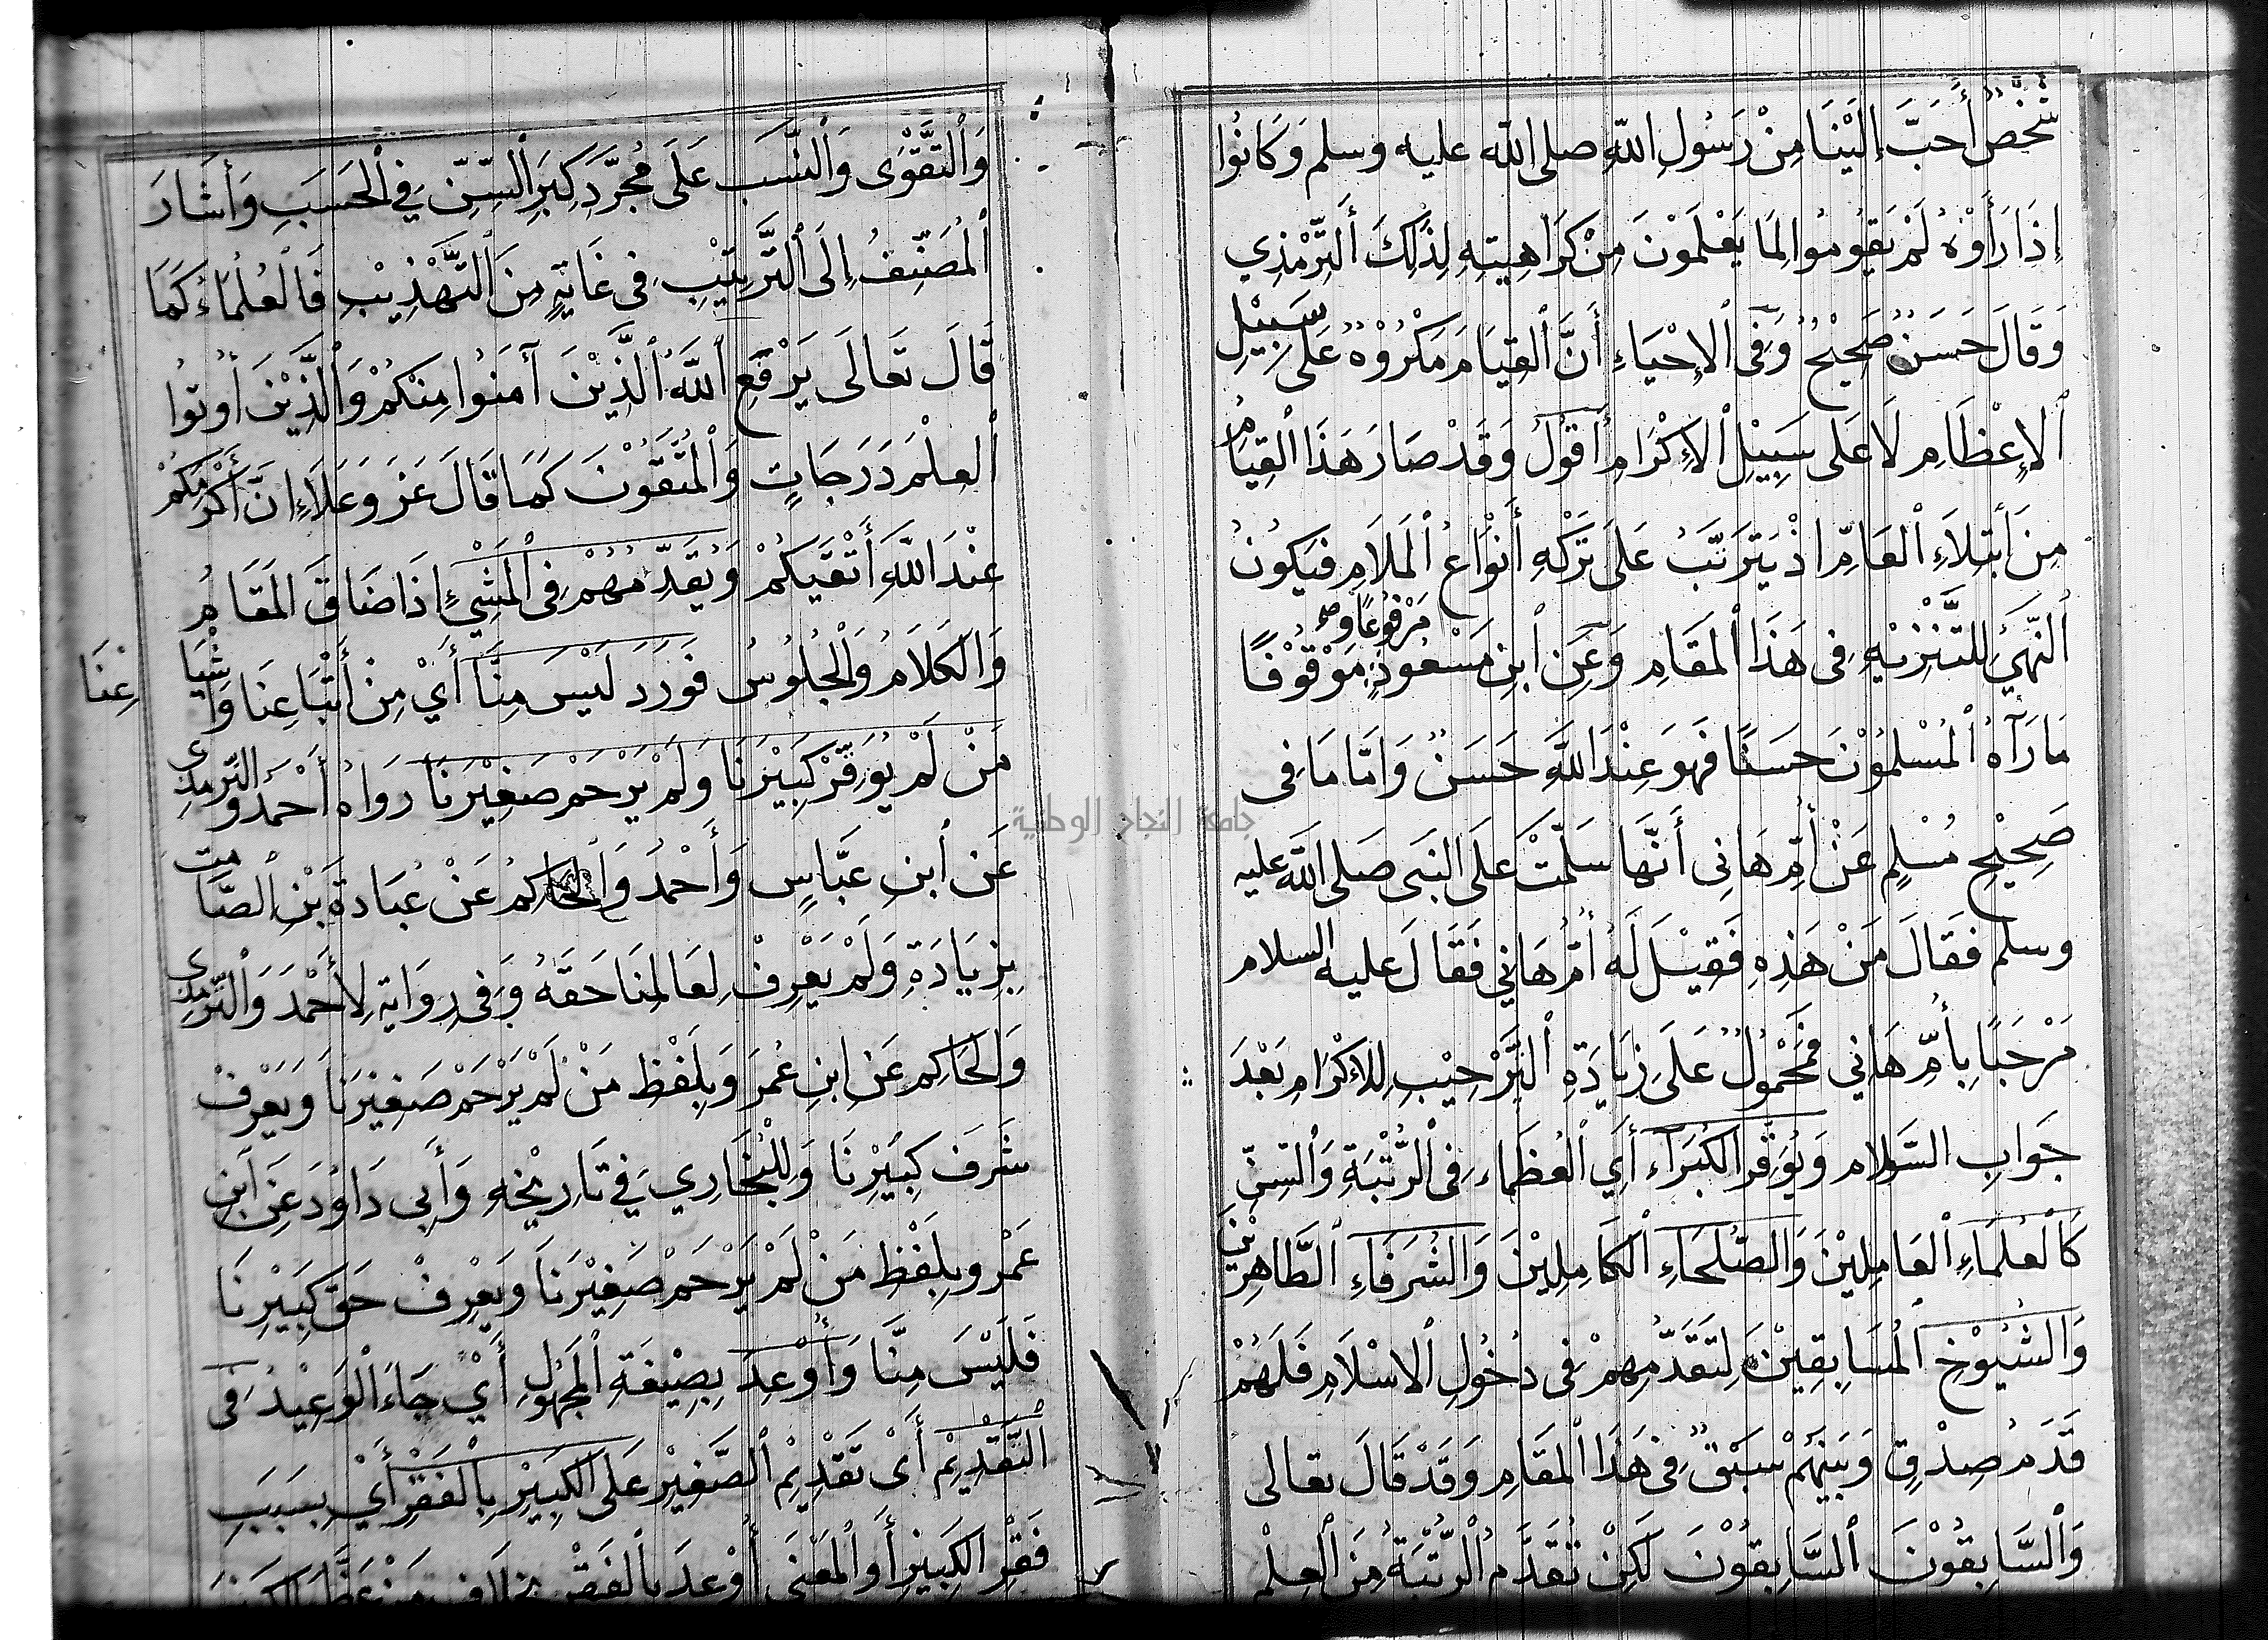 شَخْصٌ أَحَبَّ إِلَيْنَا مِنْ رَسُولِ اللّٰهِ صلى اللّٰه عليه وسلم وَكَانُوا
إِذَا رَأَوْهُ لَمْ يَقُومُوا لِمَا يَعْلَمُوْنَ مِنْ كَرَاهِيتِهِ لِذَلِكَ التِّرْمِذِي
وَقَالَ حَسَنٌ صَحِيْحٌ وَفِى الإِحْيَاءِ أَنَّ القِيَامَ مَكْرُوْهٌ عَلَى سَبِيْلِ
الإِعْظَامِ لَا عَلَى سَبِيْلِ الإِكْرَامِ أَقُولُ وَقَدْ صَارَ هَذَا القِيَامُ
مِنَ ابْتِلاَءِ العَامِّ اذْ يَتَرَتَّبُ عَلَى تَرْكِهِ أَنْوَاعُ المَلَامِ فَيَكُونُ
النَّهْيُ لِلتَّنْزِيْهِ فِى هَذَا المَقَامِ وَعَنِ ابنِ مَسْعُودٍ مَرْفُوعًا وَ مَوْقُوْفًا
مَا رَآهُ المُسْلِمُوْنَ حَسَنًا فَهوَ عِنْدَ اللّٰهِ حَسَنٌ وَامّا مَا فِى
صَحِيْحِ مُسْلِمٍ عَنْ أُمِّ هَانِى أَنَّهَا سَلّمَتْ عَلَى النَّبِى صَلى اللّٰه عليه
وسلم فقَالَ مَنْ هَذِهِ فَقِيْلَ لَهُ أُمُّ هَانِي فَقَالَ عليه السلام
مَرْحَبًا بِأُمِّ هَانِي فَمَحْمُولٌ عَلَى زِيَادَةِ التَّرْحِيْبِ لِلاكْرَامِ بَعْدَ
جَوَابِ السَّلام وَيُوَقِّرُ الكُبَرَاءَ أَيِ العُظَمَاء فِى الرُّتْبَةِ وَالسِنِّ
كَالعُلَمَاءِ العَامِلِيْنَ وَالصُّلَحَاءِ الكَامِلِيْنَ وَالشُرَفَاءِ الطَّاهِرِيْنَ
وَالشُيُوْخِ المُسَابِقِيْنَ لِتَقَدُّمِهِمْ فِى دُخُولِ الاسْلَامِ فَلَهُمْ
قَدَمُ صِدْقٍ وَبَيْنَهُمْ سَبْقٌ فِى هَذَا المَقَامِ وَقَدْ قَالَ تعالى
وَالسَّابِقُوْنَ السَّابِقُوْنَ لَكِنْ تُقَدَّمُ الرُّتْبَةُ مِنَ العِلْمِ
وَالتَّقْوَى وَالنَّسَبِ عَلَى مُجَرَّدِ كِبَرِ السِّنِّ فِي الحَسَبِ وَأَشَارَ
المُصَنِّفُ إِلَى التَّرْتِيْبِ فِى غَايَةٍ مِنَ التَّهْذِيْبِ فَالعُلَمَاءُ كَمَا
قَالَ تَعَالَى يَرْفَعِ اللّٰهُ الَّذِيْنَ آمَنُوا مِنْكُمْ وَالَّذِيْنَ أُوتُوا
العِلْمَ دَرَجَاتٍ وَالمُتَّقُوْنَ كَمَا قَالَ عَزَّ وَعَلَا إِنَّ أَكْرَمَكُمْ
عِنْدَ اللّٰهِ أَتْقَيكُمْ وَيُقَدِّمُهُمْ فِى المَشْيِ إِذَا ضَاقَ المَقَامُ
وَالكَلَامُ وَالجُلُوسُ فَوَرَدَ لَيْسَ مِنَّا أَيْ مِنْ أَتْبَاعِنَا وَأَشْيَا عِنَا
مَنْ لَمْ يُوَقِّرْ كَبِيْرَنَا وَلَمْ يَرْحَمْ صَغِيْرَنَا رَوَاهُ أَحْمَدُ وَالتّرمذِى
عَنِ ابنِ عَبَّاسٍ وَأَحْمَدُ وَالحَاكِمُ عَنْ عُبَادةَ بْنِ الصَّامِتِ
بِزِيَادَةِ وَلَمْ يَعْرِفْ لِعَالِمِنَا حَقَّهُ وَفِى رِوَايَةٍ لِأَحْمَدَ وَالتِّرْمِذِى
وَالحَاكِمِ عَنِ ابنِ عُمَرَ وَبِلَفْظِ مَنْ لَمْ يَرْحَمْ صَغِيْرَنَا وَيَعْرِفْ
شَرَفَ كَبِيْرِنَا وَلِلْبُخَارِي فِي تَارِيْخِهِ وَأَبِى دَاوُدَ عَنِ ابنِ
عَمْرو بِلَفْظِ مَنْ لَمْ يَرْحَمْ صَغِيْرَنَا وَيَعْرِفْ حَقَّ كَبِيْرِنَا
فَلَيْسَ مِنَّا وَأُوْعِدَ بِصِيْغَةِ المَجْهُولِ أَيْ جَاءَ الوَعِيْدُ فِى
التَّقْدِيْمِ أَىْ تَقْدِيْمِ الصَّغِيْرِ عَلَى الكَبِيْرِ بِالفَقْرِ أَيْ بِسَبَبِ
فَقْرِ الكَبِيْرِ أَوِ المَعْنَى أُوْعِدَ بِالفَقْرِ
جامعة النجاح الوطنية